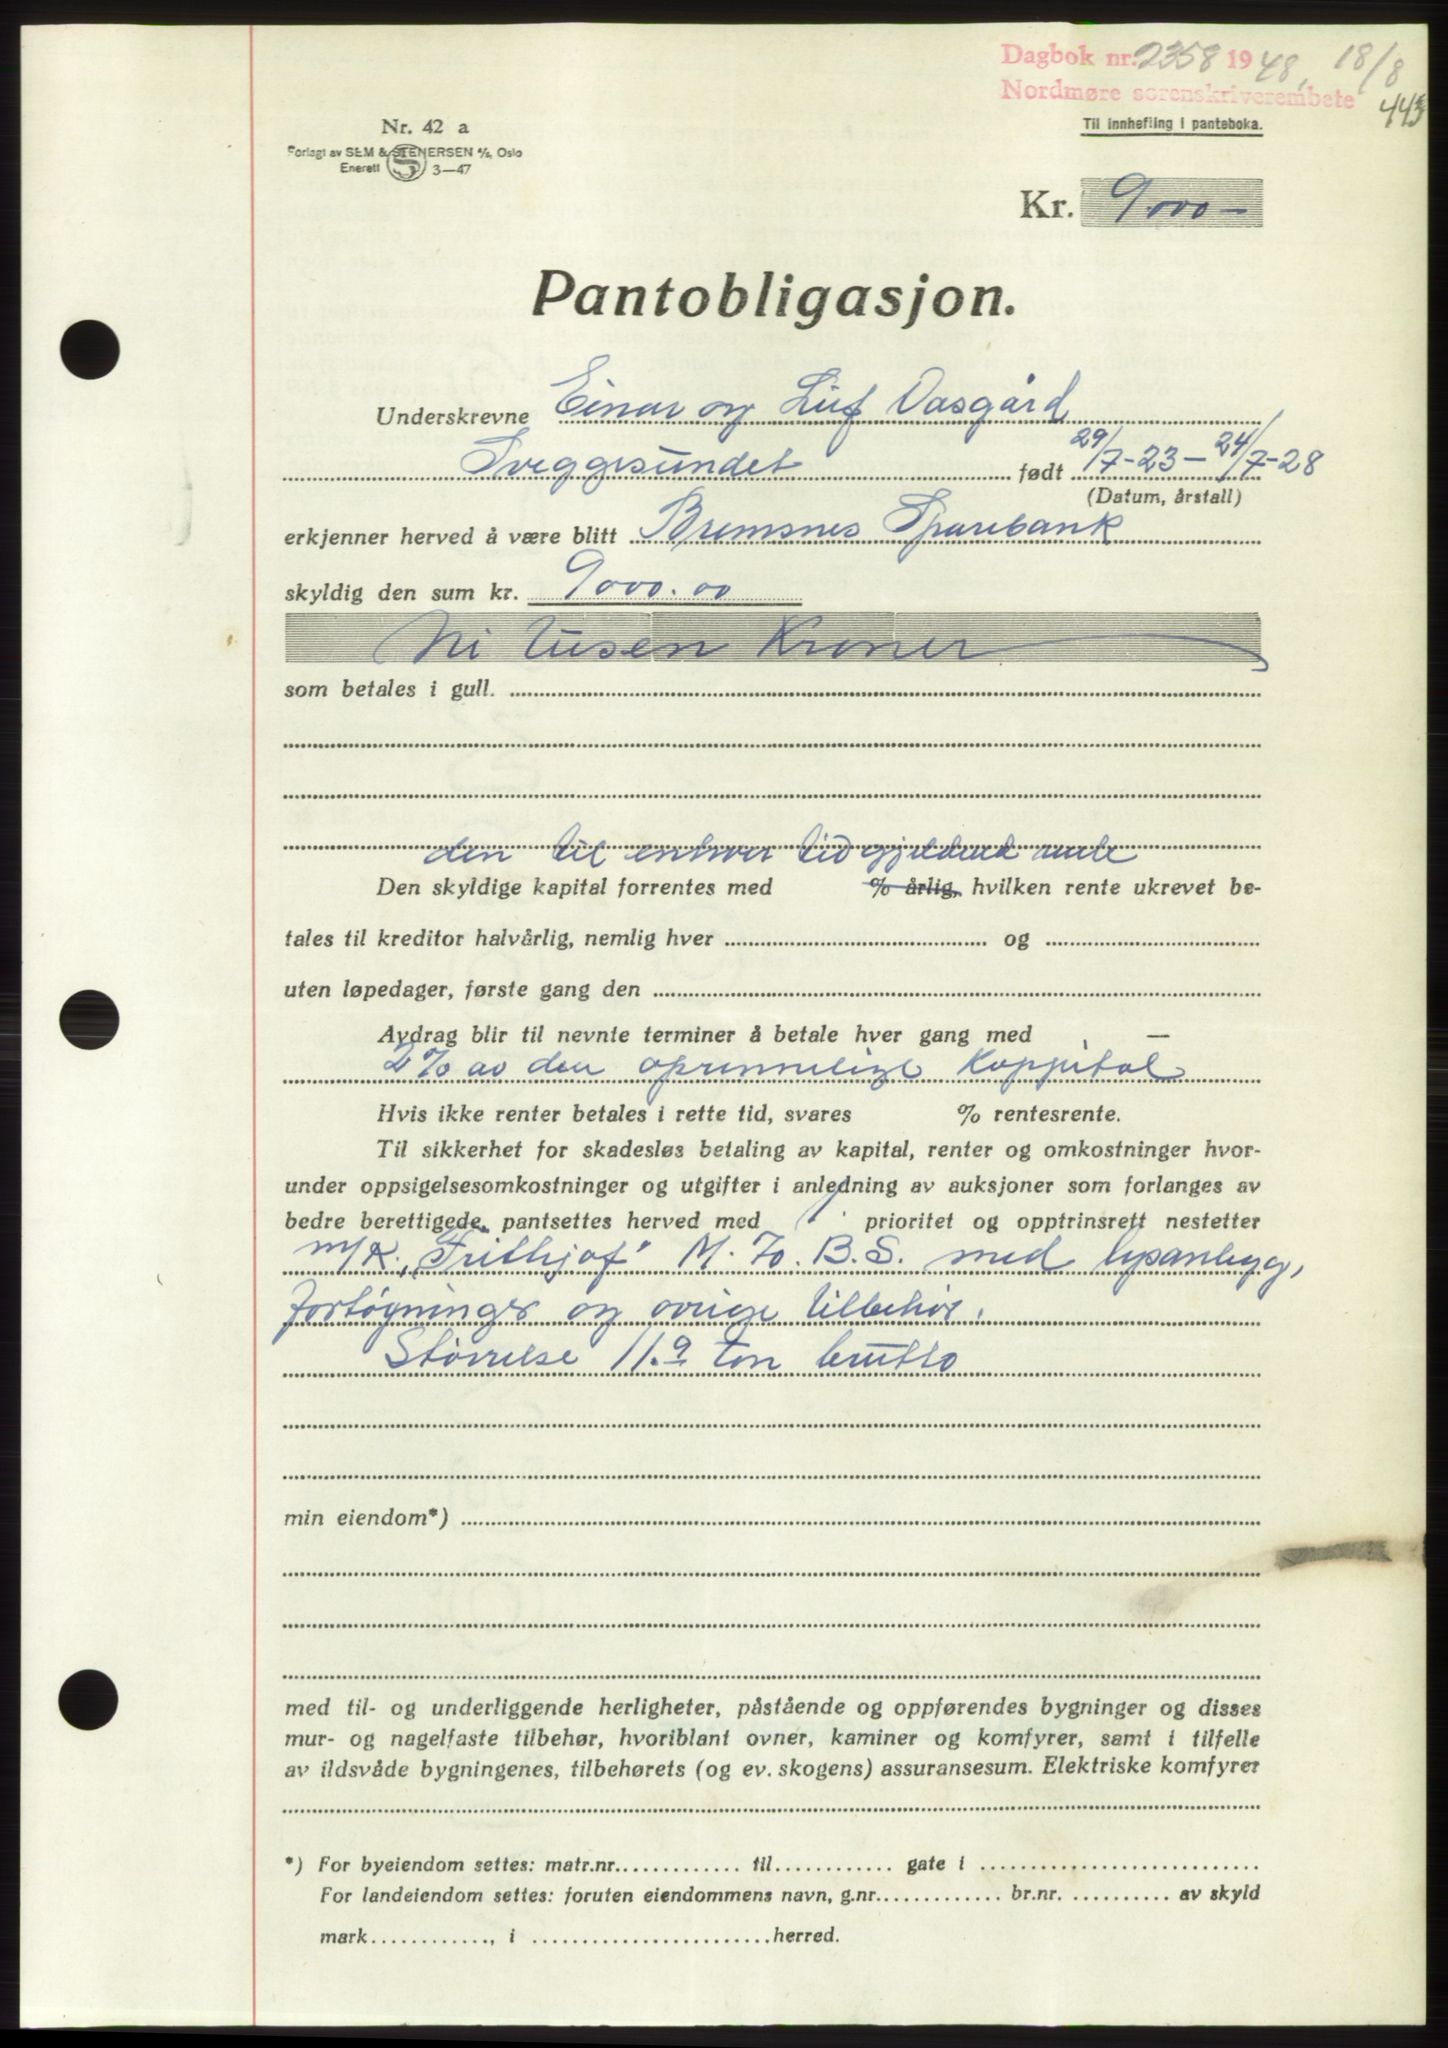 Dagbok nr. 2358 1948, 18/8
Nordmøre sorenskriverembete
443
Til innhefting i panteboka.
Nr. 42 a
Forlagt av SEM & STENERSEN A/S, Oslo
Enerett S 3—47
Kr. 9.000 –
Pantobligasjon.
Underskrevne Einar og Leif Vasgård
Sveggesundet født 29/7-23 – 24/7-28
(Datum, årstall)
erkjenner herved å være blitt Bremsnes Sparebank
skyldig den sum kr. 9000.00
Ni tusen Kroner
som betales i gull.
den til enhver tid gjeldend rente
Den skyldige kapital forrentes med % årlig, hvilken rente ukrevet be-
tales til kreditor halvårlig, nemlig hver og
uten løpedager, første gang den
Avdrag blir til nevnte terminer å betale hver gang med —
2% av den oprinnelige Kappital
Hvis ikke renter betales i rette tid, svares % rentesrente.
Til sikkerhet for skadesløs betaling av kapital, renter og omkostninger hvor-
under oppsigelsesomkostninger og utgifter i anledning av auksjoner som forlanges av
bedre berettigede, pantsettes herved med 1. prioritet og opptrinsrett nestetter
m/k. „Frithjof" M. 70. B.S. med
fortøgninger og øvrige tilbehør.
Størrelse 11.9 ton brutto
min eiendom*)
med til- og underliggende herligheter, påstående og oppførendes bygninger og disses
mur- og nagelfaste tilbehør, hvoriblant ovner, kaminer og komfyrer, samt i tilfelle
av ildsvåde bygningenes, tilbehørets (og ev. skogens) assuransesum. Elektriske komfyrer
*) For byeiendom settes: matr.nr. til gate i
For landeiendom settes: foruten eiendommens navn, g.nr. br.nr. av skyld
mark , i herred.